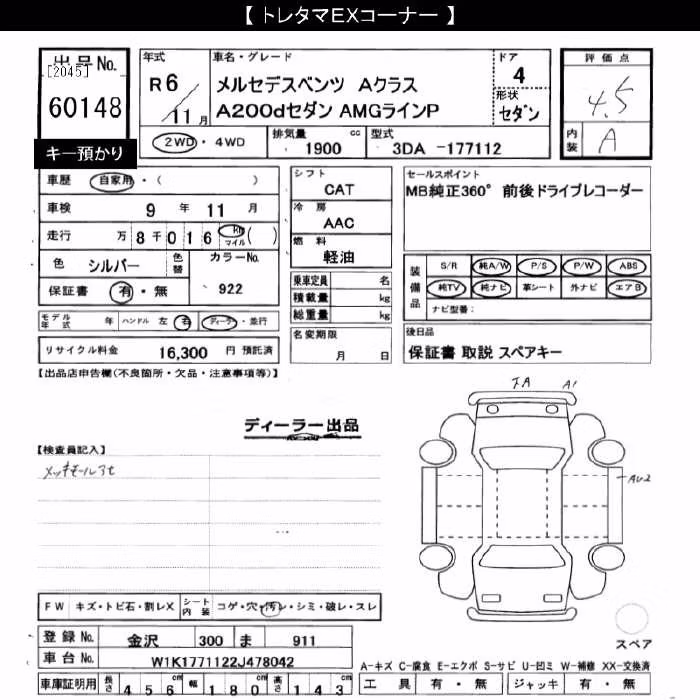 【 トレタマEXコーナー 】
出品 No.
[2045]
60148
キー預かり
年式
R 6 / 11 月
車名・グレード
メルセデスベンツ Aクラス
A200dセダン AMGラインP
ドア
4
形状
セダン
2WD・4WD
排気量 1900 cc
型式 3DA -177112
評価点
4.5
内装
A
車歴 自家用・( )
車検 9 年 11 月
走行 万 8 千 0 1 6 km マイル ( )
色 シルバー
色替
カラーNo.
922
保証書 有・無
モデル年式 年 ハンドル 左 右 ディーラー・並行
リサイクル料金 16,300 円 預託済
シフト
CAT
冷房
AAC
燃料
軽油
乗車定員 名
積載量 kg
総重量 kg
名変期限
月 日
セールスポイント
MB純正360° 前後ドライブレコーダー
装備品
S/R 純A/W P/S P/W ABS
純TV 純ナビ 革シート 外ナビ エアB
ナビ型番:
後日品
保証書 取説 スペアキー
【出品店申告欄(不良箇所・欠品・注意事項等)】
ディーラー出品
【検査員記入】
メッキモール
A1
AU2
FW キズ・トビ石・割レX
シート内装 コゲ・穴・汚レ・シミ・破レ・スレ
登録 No. 金沢 300 ま 911
車台 No. W1K1771122J478042
車庫証明用 長さ 456 cm 幅 180 cm 高さ 143 cm
スペア
A-キズ C-腐食 E-エクボ S-サビ U-凹ミ W-補修 XX-交換済
工具 有・無 ジャッキ 有・無